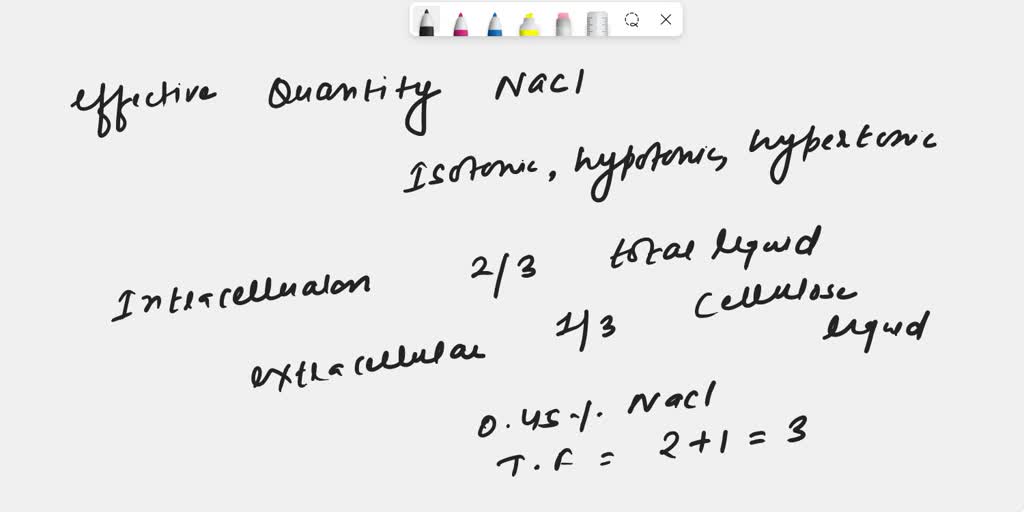 effective Quantity NaCl
Isotonic, hypotonic, hypertonic
Intracellualar 2/3 total liquid
extracellular 1/3 Cellulose liquid
0.45 %. NaCl
T.F = 2+1 = 3